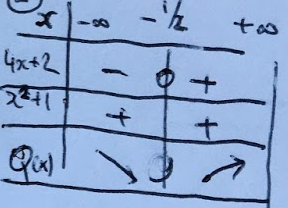 x -∞ -1/2 +∞
4x+2 - 0 +
x²+1 + +
Q(x) ↘ ↗